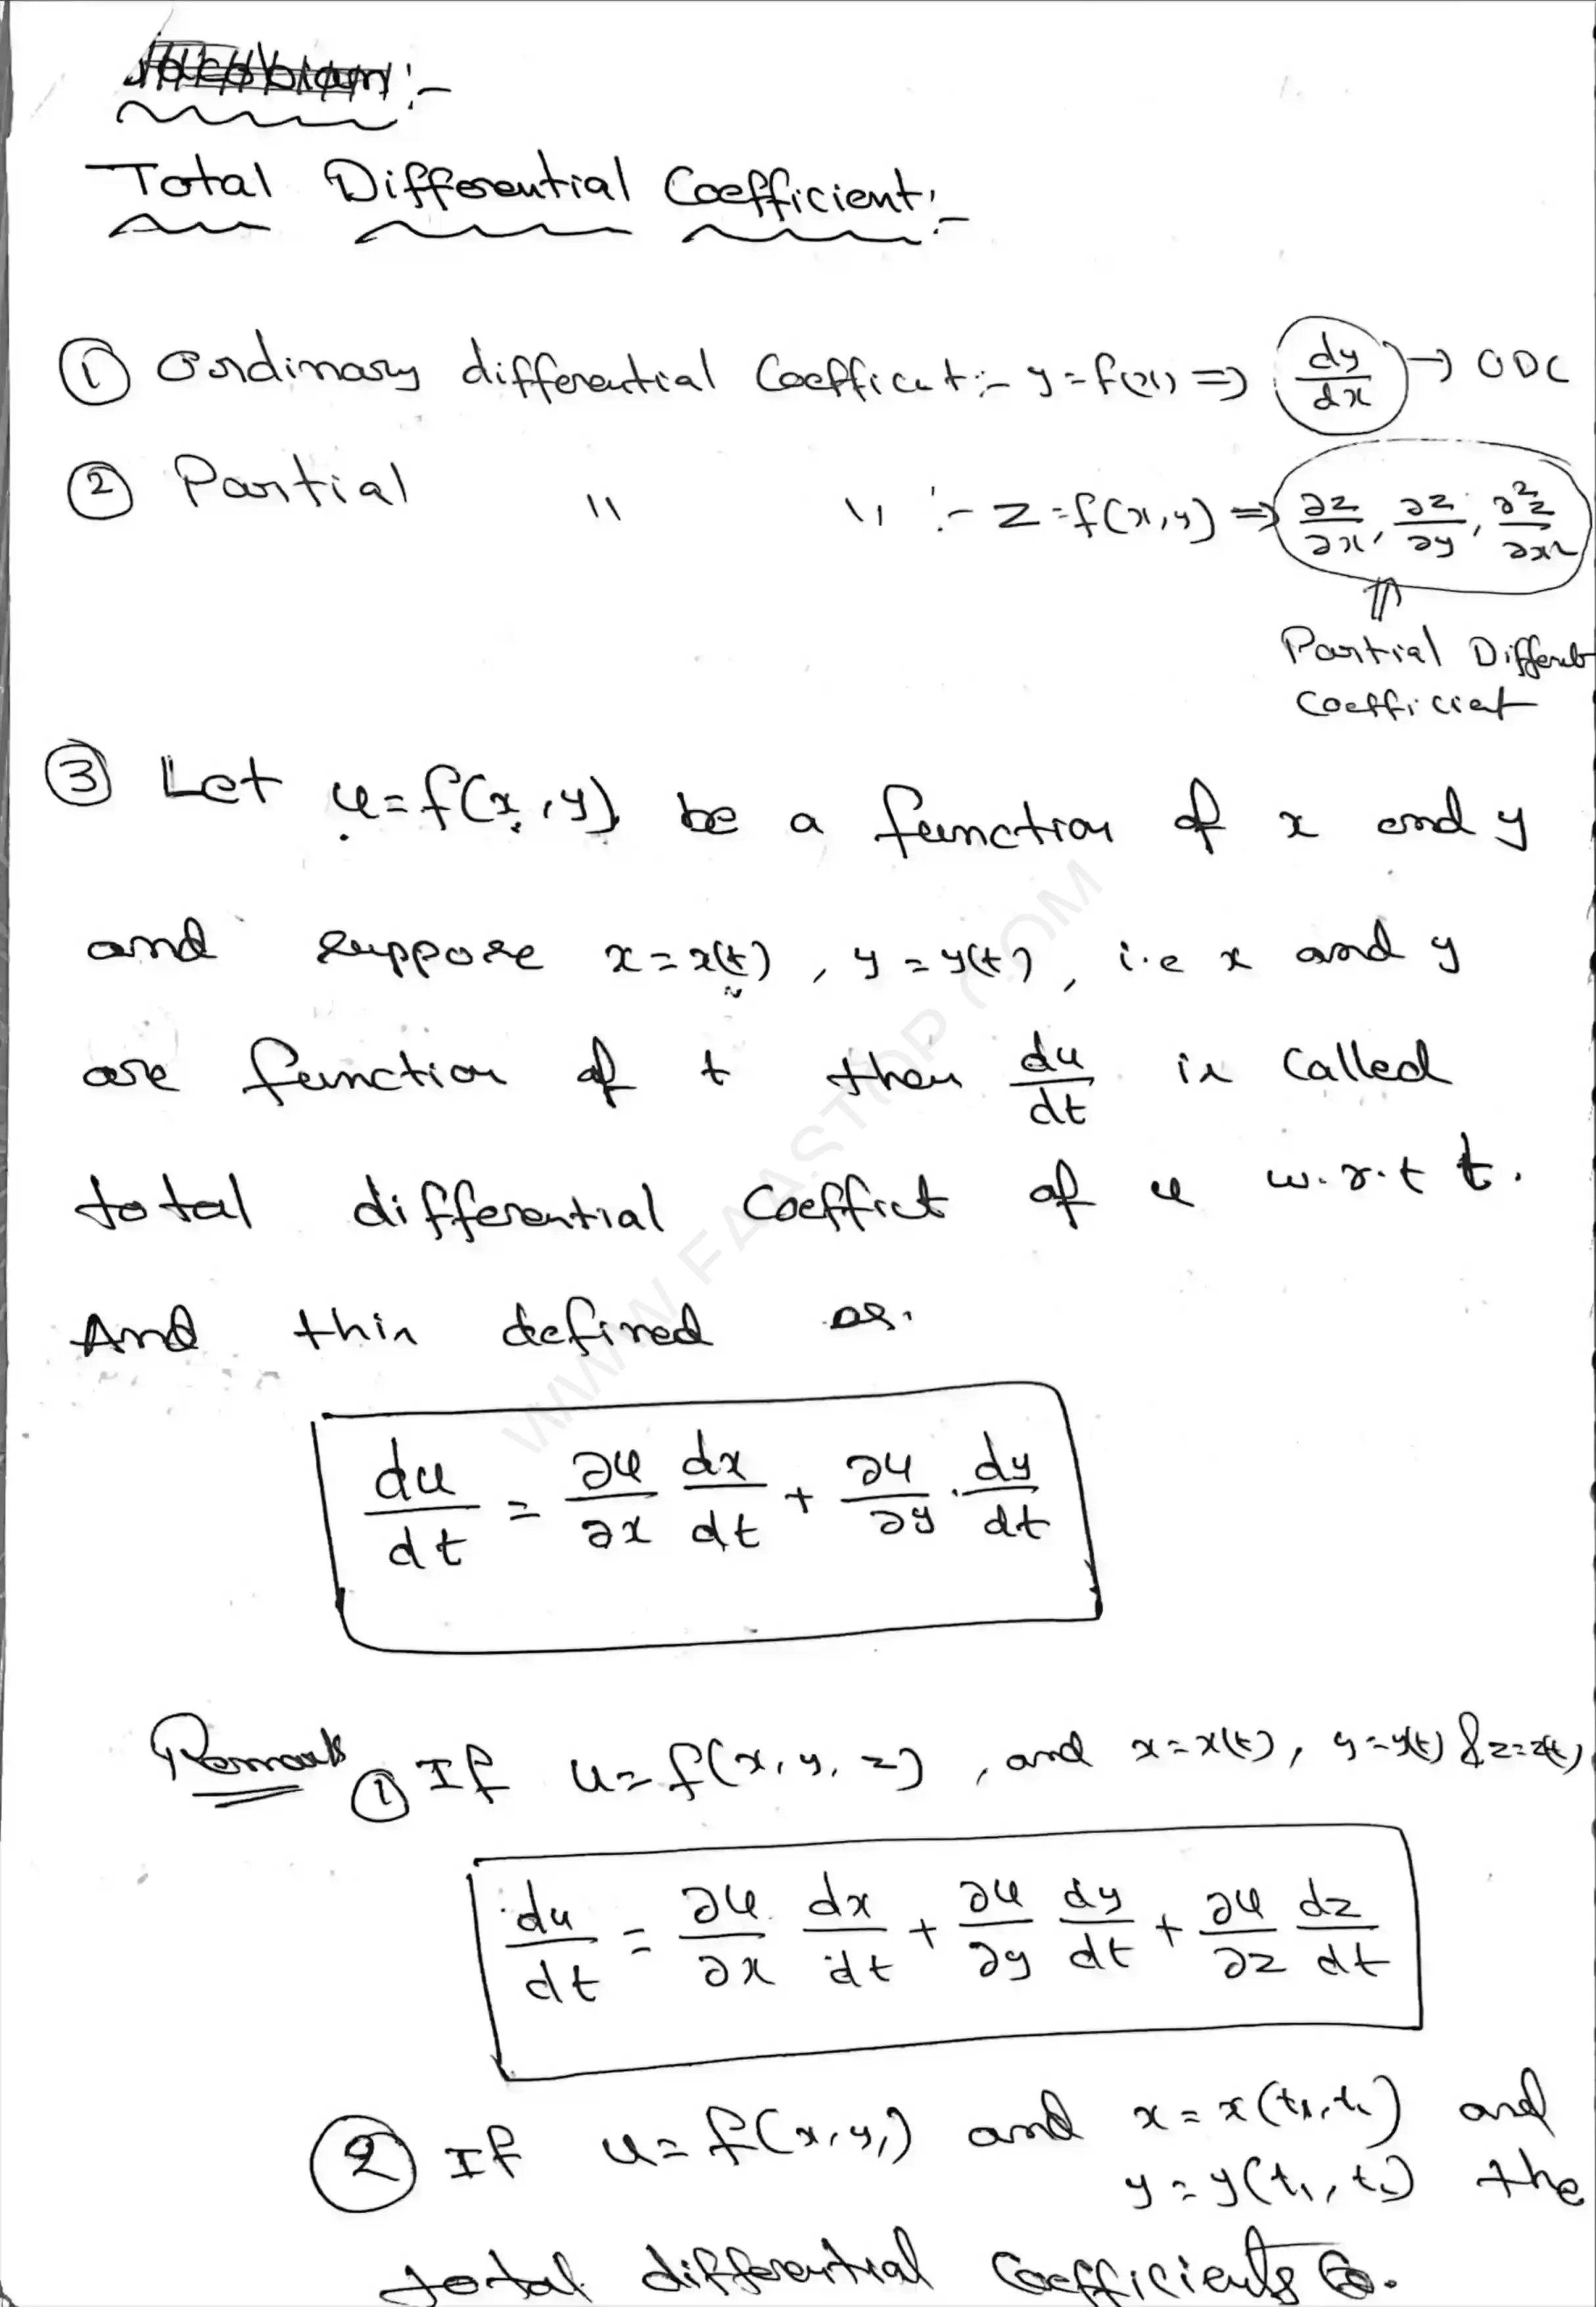 Jacobian :-
Total Differential Coefficient :-
① Ordinary differential Coefficut :- y = f(x) ⇒ dy/dx → ODC
② Partial " " :- z = f(x,y) ⇒ ∂z/∂x, ∂z/∂y, ∂²z/∂x²
⇑
Partial Different
Coefficient
③ Let u = f(x,y) be a function of x and y
and suppose x = x(t), y = y(t), i.e x and y
are function of t then du/dt is called
total differential Coeffict of u w.r.t t.
And this defined as.
du/dt = ∂u/∂x dx/dt + ∂u/∂y . dy/dt
Remark ① If u = f(x, y, z), and x = x(t), y = y(t) & z = z(t)
du/dt = ∂u/∂x dx/dt + ∂u/∂y dy/dt + ∂u/∂z dz/dt
② If u = f(x,y,) and x = x(t₁,t₂) and
y = y(t₁,t₂) the
total differential Coefficients
WWW.FAASTOP.COM